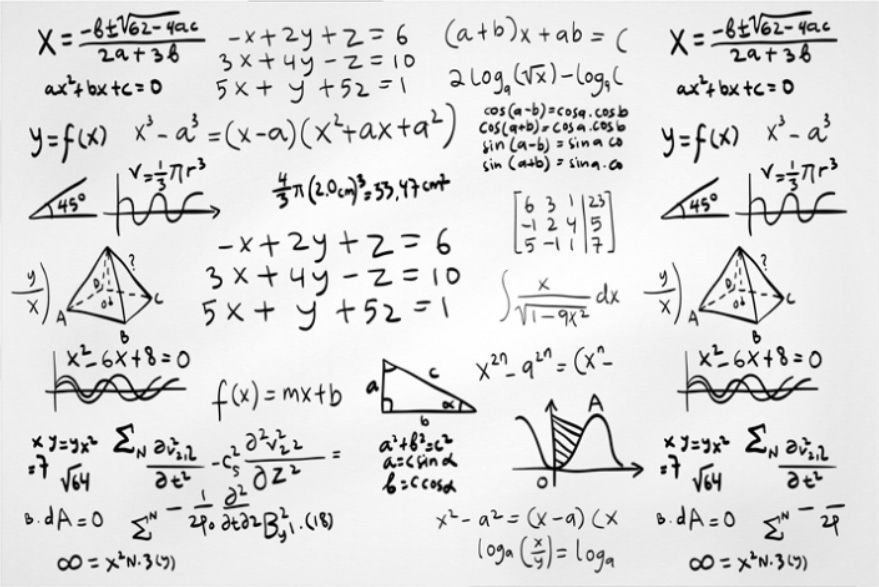 x = -b±√62-4ac / 2a+3b
ax²+bx+c=0
-x+2y+z=6
3x+4y-z=10
5x+ y+5z=1
(a+b)x+ab=(
2Logₐ(√x)-Logₐ(
x = -b±√62-4ac / 2a+3b
ax²+bx+c=0
y=f(x)
x³-a³=(x-a)(x²+ax+a²)
cos(a-b)=cosa.cosb
cos(a+b)=cosa.cosb
sin(a-b)=sina co
sin(a+b)=sina.co
y=f(x)
x³-a³
45°
V=1/3πr³
4/3π(2.0cm)³=33,47cm²
6 3 1 | 23
-1 2 4 | 5
5 -1 1 | 7
45°
V=1/3πr³
y/x)
A B C D ob ?
-x+2y+z=6
3x+4y-z=10
5x+ y+5z=1
∫ x/√1-9x² dx
y/x)
A B C D ob ?
x²-6x+8=0
f(x)=mx+b
a b c α
x²ⁿ-a²ⁿ=(xⁿ-
x²-6x+8=0
xy=yx²
=7 √64
a²+b²=c²
a=c sinα
b=c cosα
A
0
xy=yx²
=7 √64
B.dA=0
∞=x²N.3(y)
x²-a²=(x-a)(x
logₐ(x/y)=logₐ
B.dA=0
∞=x²N.3(y)